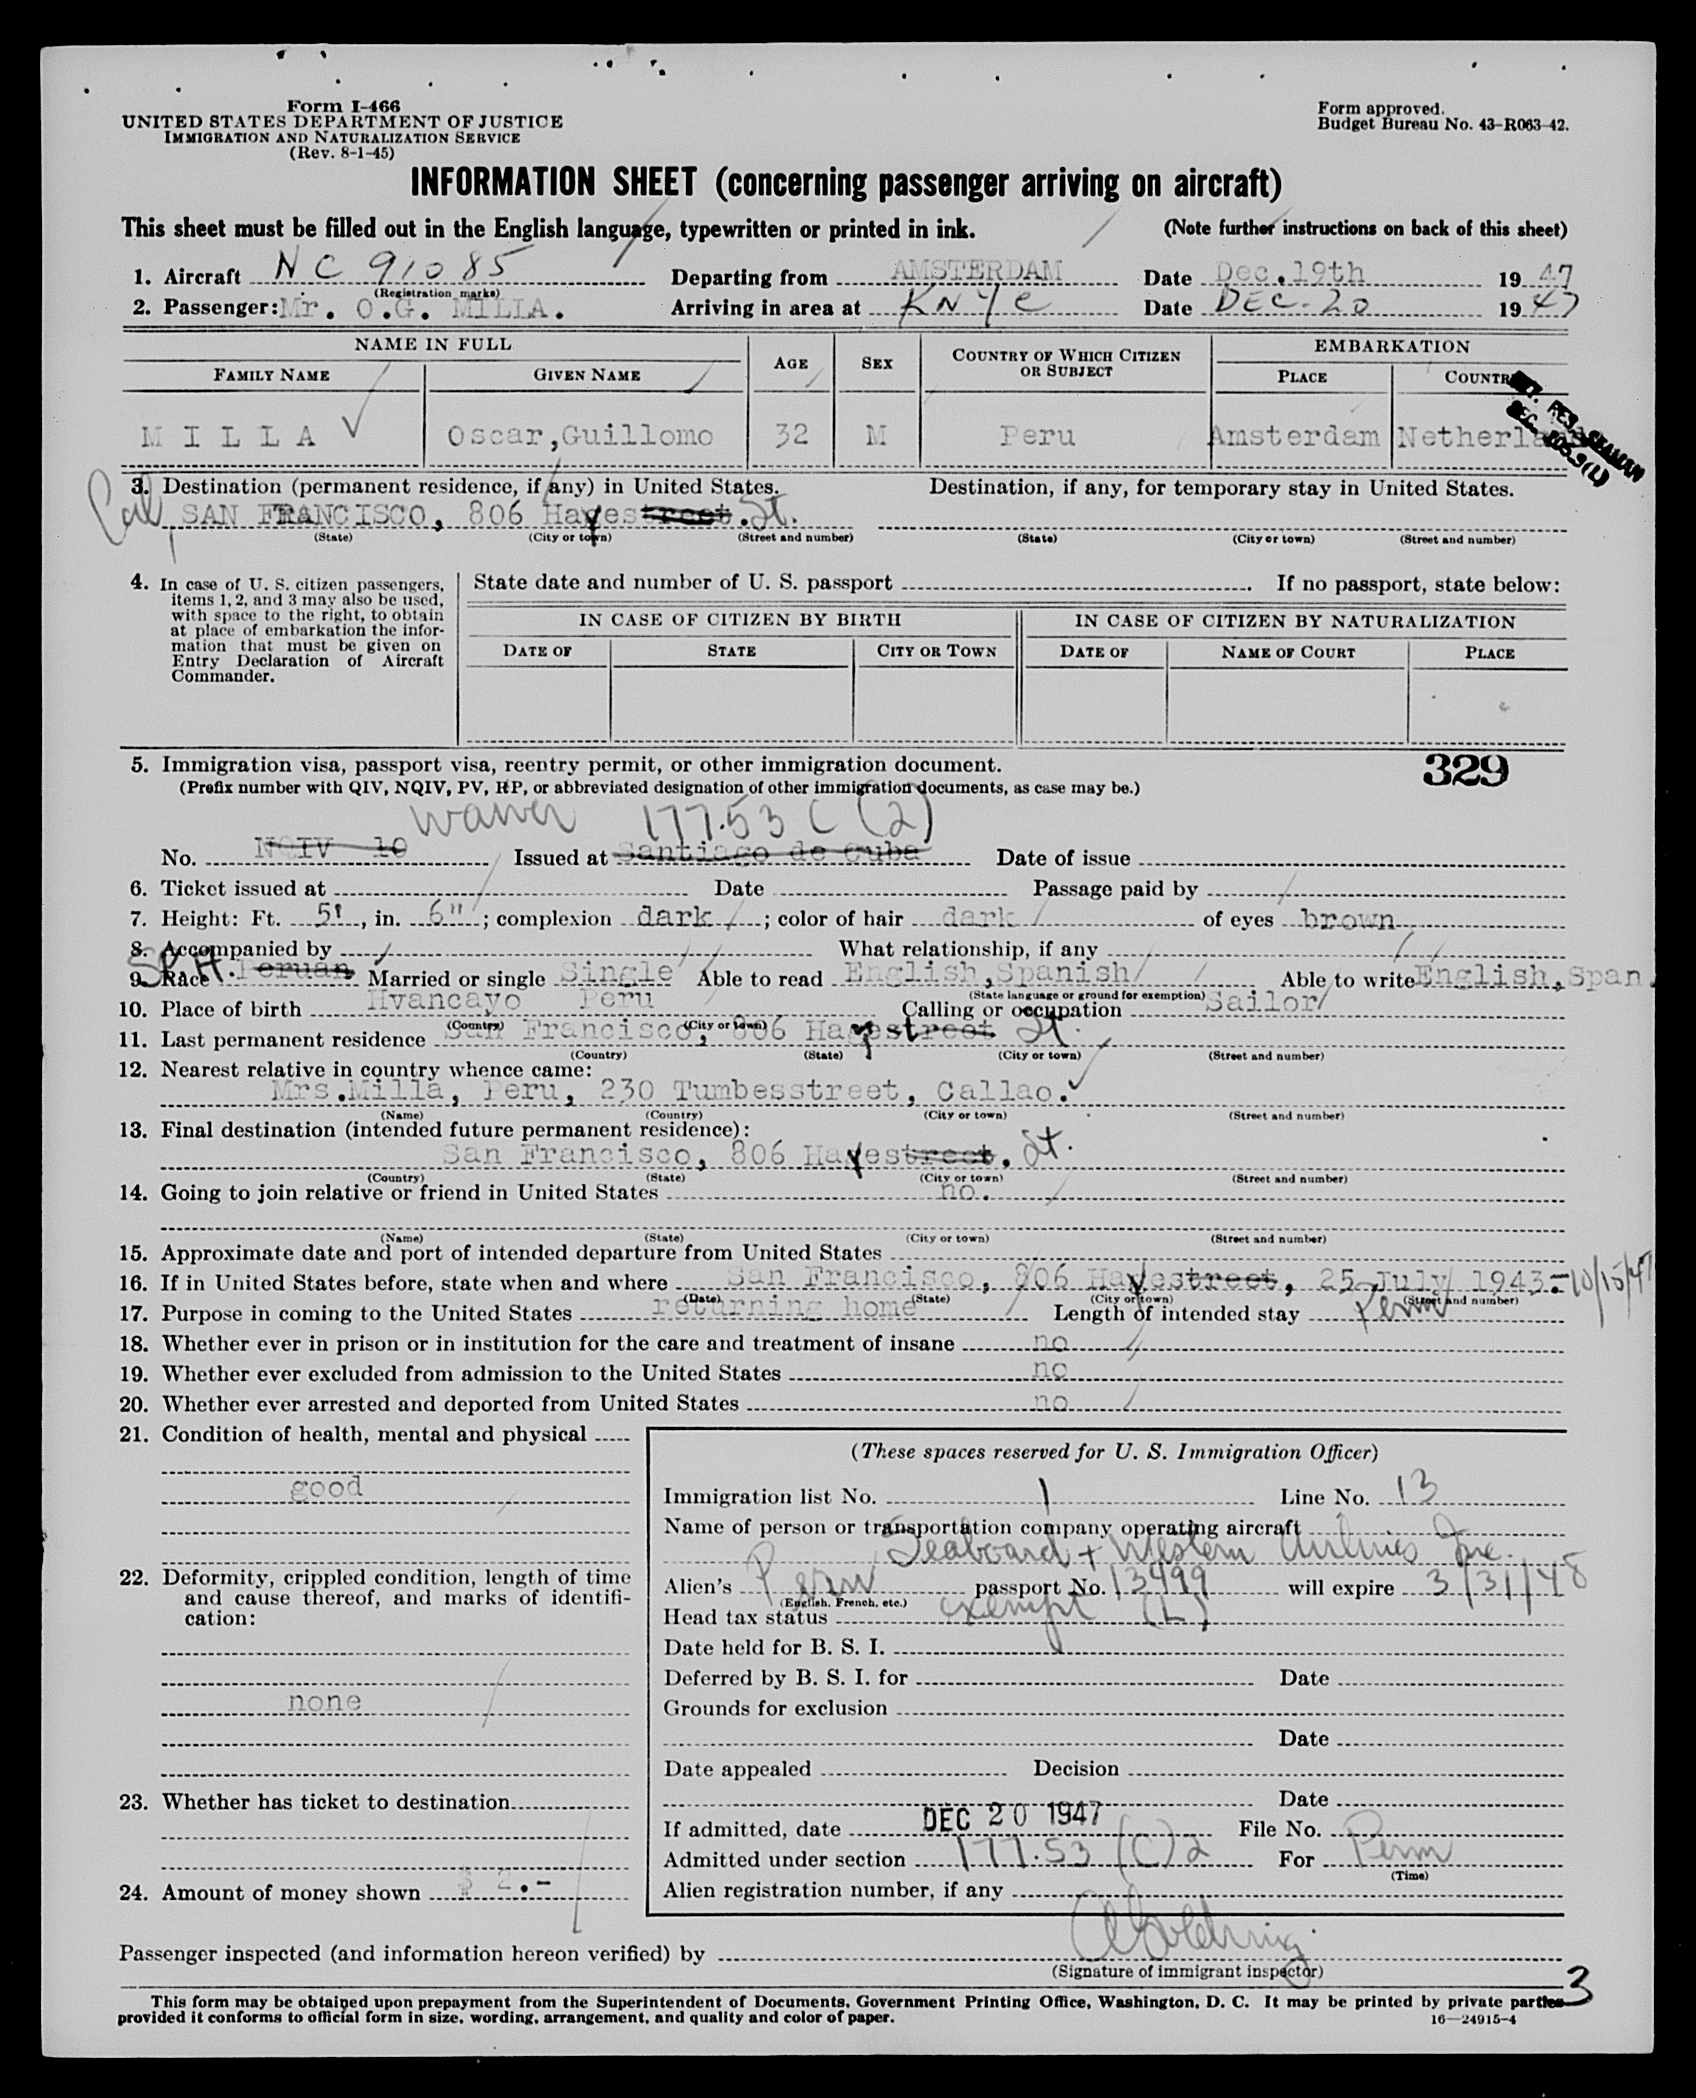 Form I-466
UNITED STATES DEPARTMENT OF JUSTICE
IMMIGRATION AND NATURALIZATION SERVICE
(Rev. 8-1-45)
Form approved.
Budget Bureau No. 43-R063-42.
INFORMATION SHEET (concerning passenger arriving on aircraft)
This sheet must be filled out in the English language, typewritten or printed in ink. (Note further instructions on back of this sheet)
1. Aircraft NC 91085 Departing from AMSTERDAM Date Dec.19th 1947
(Registration marks)
2. Passenger: Mr. O.G. MILLA. Arriving in area at KNYC Date DEC-20 1947
NAME IN FULL AGE SEX COUNTRY OF WHICH CITIZEN OR SUBJECT EMBARKATION
FAMILY NAME GIVEN NAME PLACE COUNTRY
RES. SEAMAN
M I L L A Oscar,Guillomo 32 M Peru Amsterdam Netherland
3. Destination (permanent residence, if any) in United States. Destination, if any, for temporary stay in United States.
Cal SAN FRANCISCO, 806 Hayestreet. St.
(State) (City or town) (Street and number) (State) (City or town) (Street and number)
4. In case of U. S. citizen passengers, items 1, 2, and 3 may also be used, with space to the right, to obtain at place of embarkation the information that must be given on Entry Declaration of Aircraft Commander.
State date and number of U. S. passport If no passport, state below:
IN CASE OF CITIZEN BY BIRTH IN CASE OF CITIZEN BY NATURALIZATION
DATE OF STATE CITY OR TOWN DATE OF NAME OF COURT PLACE
5. Immigration visa, passport visa, reentry permit, or other immigration document. 329
(Prefix number with QIV, NQIV, PV, RP, or abbreviated designation of other immigration documents, as case may be.)
waiver 177.53 C (2)
No. NQIV 10 Issued at Santiago de Cuba Date of issue
6. Ticket issued at Date Passage paid by
7. Height: Ft. 5', in. 6"; complexion dark; color of hair dark of eyes brown
8. Accompanied by What relationship, if any
9. Race Sp. A. Peruan Married or single Single Able to read English,Spanish Able to write English,Span.
(State language or ground for exemption)
10. Place of birth Hvancayo Peru Calling or occupation Sailor
(Country) (City or town)
11. Last permanent residence San Francisco, 806 Hayestreet St.
(Country) (State) (City or town) (Street and number)
12. Nearest relative in country whence came:
Mrs.Milla, Peru, 230 Tumbesstreet, Callao.
(Name) (Country) (City or town) (Street and number)
13. Final destination (intended future permanent residence):
San Francisco, 806 Hayestreet. St.
(Country) (State) (City or town) (Street and number)
14. Going to join relative or friend in United States no.
(Name) (State) (City or town) (Street and number)
15. Approximate date and port of intended departure from United States
16. If in United States before, state when and where San Francisco, 806 Hayestreet, 25 July 1943.-10/15/47
(Date) (State) (City or town) (Street and number)
17. Purpose in coming to the United States returning home Length of intended stay Perm
18. Whether ever in prison or in institution for the care and treatment of insane no
19. Whether ever excluded from admission to the United States no
20. Whether ever arrested and deported from United States no
21. Condition of health, mental and physical
good
22. Deformity, crippled condition, length of time and cause thereof, and marks of identification:
none
23. Whether has ticket to destination
24. Amount of money shown $ 2.-
(These spaces reserved for U. S. Immigration Officer)
Immigration list No. 1 Line No. 13
Name of person or transportation company operating aircraft
Seaboard + Western Airlines Inc.
Alien's Peru passport No. 13499 will expire 3/31/48
(English, French, etc.)
Head tax status exempt (L)
Date held for B. S. I.
Deferred by B. S. I. for Date
Grounds for exclusion
Date
Date appealed Decision
Date
If admitted, date DEC 20 1947 File No.
Admitted under section 177.53 (C) 2 For Perm
(Time)
Alien registration number, if any
Passenger inspected (and information hereon verified) by
(Signature of immigrant inspector)
3
This form may be obtained upon prepayment from the Superintendent of Documents, Government Printing Office, Washington, D. C. It may be printed by private parties
provided it conforms to official form in size, wording, arrangement, and quality and color of paper. 16—24915-4